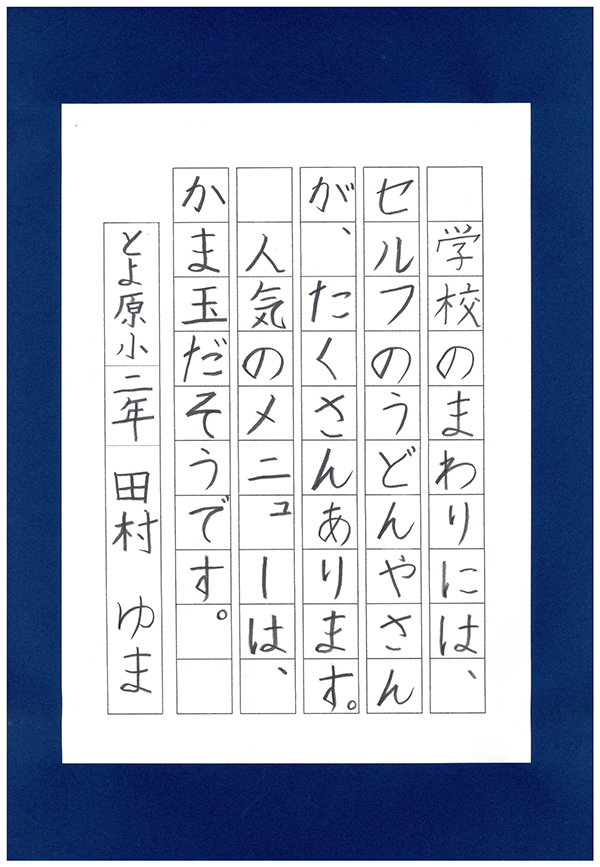 学校のまわりには、
セルフのうどんやさん
が、たくさんあります。
　人気のメニューは、
かま玉だそうです。
とよ原小二年　田村　ゆま